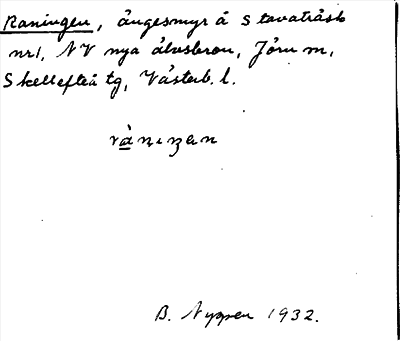 Raningen, ängesmyr å Stavaträsk
nr 1, NV nya älvsbron, Jörn m,
Skellefteå tg, Västerb. l.
rànıŋen
B. Nygren 1932.